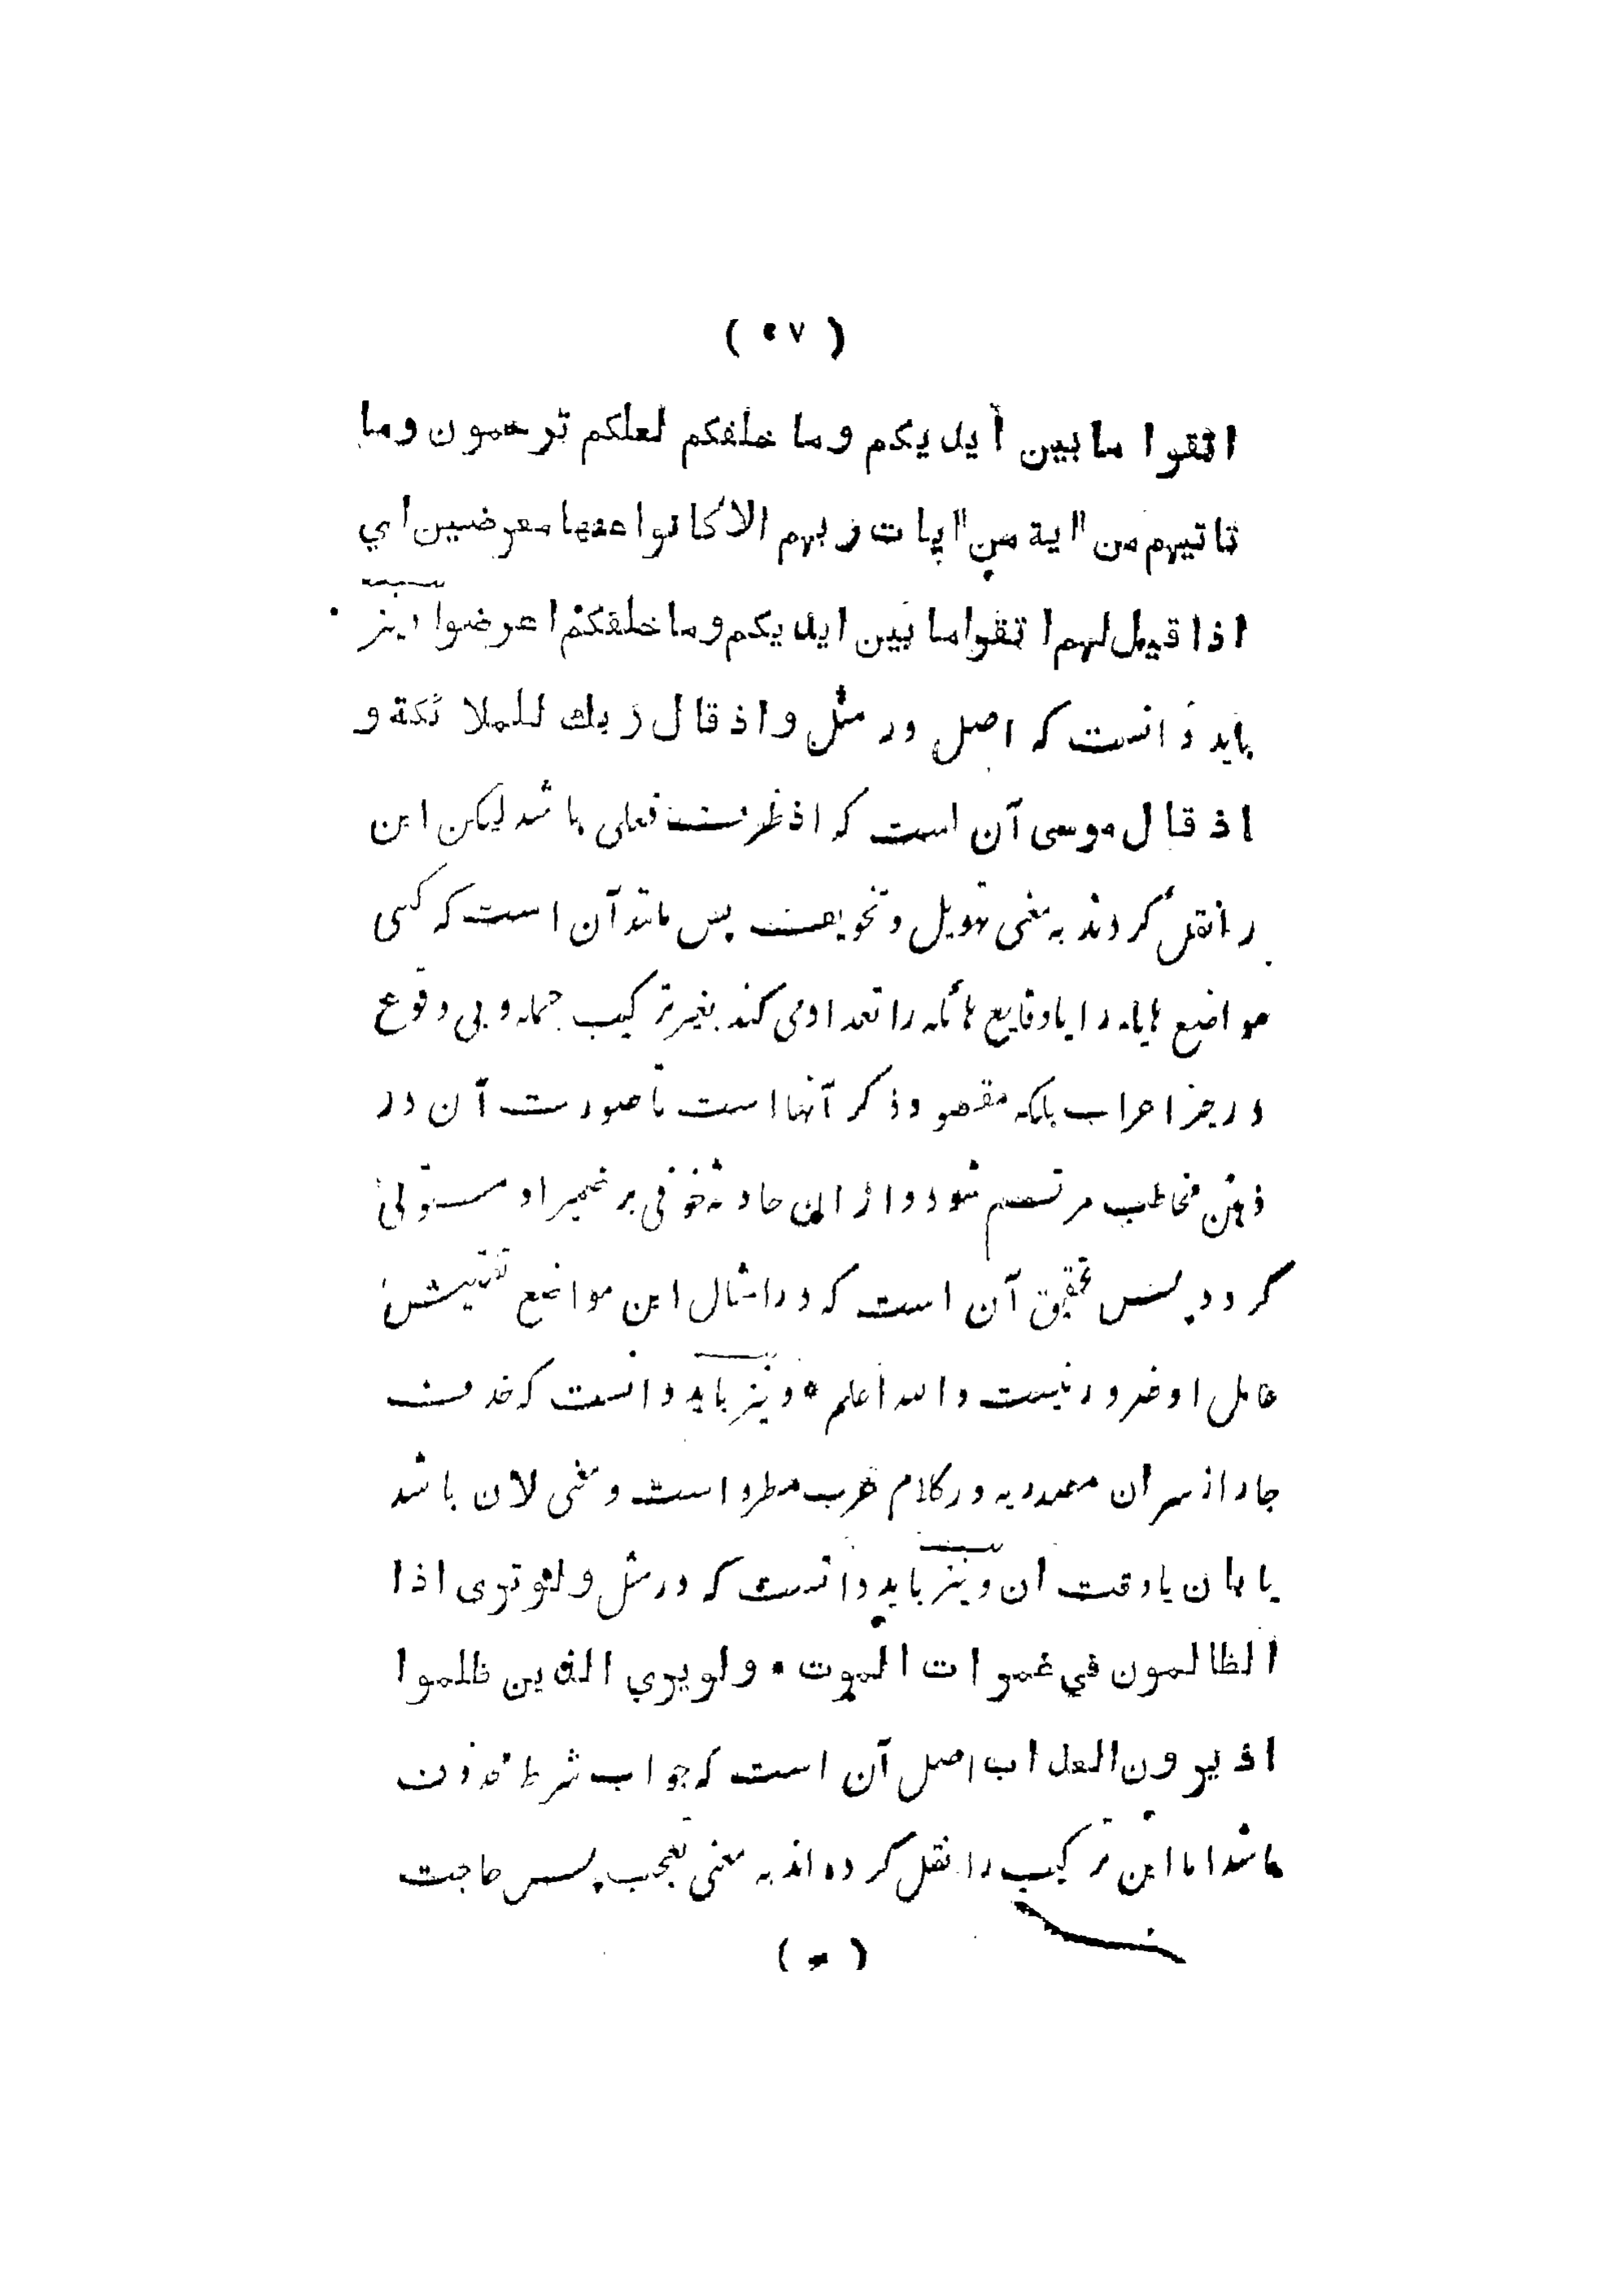 ( ٥٧ )
اتقوا ما بين أيديكم وما خلفكم لعلكم ترحمون وما
تاتيهم من اية من ايات ربهم الا كانوا عنها معرضين اي
اذا قيل لهم اتقوا ما بين ايديكم وما خلفكم اعرضوا ونیز
باید دانست که اصل در مثل واذ قال ربك للملائكة و
اذ قال موسى آن است که اذ ظرف فعلی باشد لیکن این
را نقل کردند به معنی تهویل و تخویف پس مانند آن است که کسی
مواضع هایله را یا وقایع هائله را تعداد می کند بغیر ترکیب جمله و بی وقوع
در حیز اعراب بلکه مقصود ذکر آنها است تا صورت آن در
ذهن مخاطب مرتسم شود و از این حادثه خوفی بر ضمیر او مستولی
گردد پس تحقیق آن است که در امثال این مواضع تفتیش
عامل او ضرور نیست والله اعلم * و نیز باید دانست که حذف
جار از سر ان مصدریه در کلام عرب مطرد است و معنی لان باشد
یا بان یا وقت ان و نیز باید دانست که در مثل ولو ترى اذا
الظالمون في غمرات الموت * ولو يري الذين ظلموا
اذ يرون العذاب اصل آن است که جواب شرط محذوف
باشد اما این ترکیب را نقل کرده اند به معنی تعجب پس حاجت